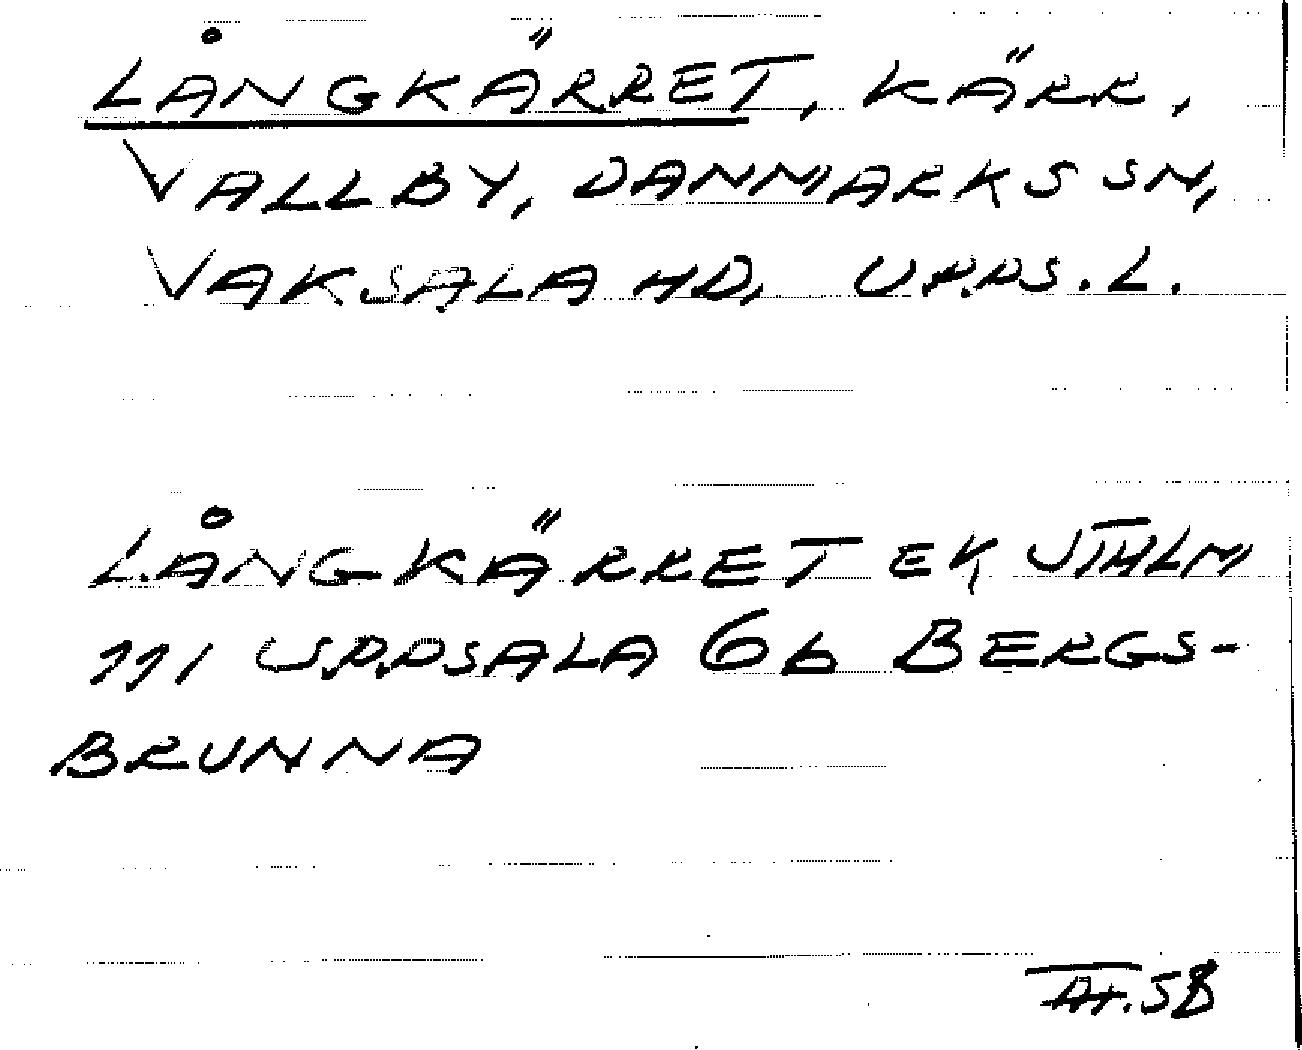 LÅNGKÄRRET, KÄRR,
VALLBY, DANMARKS SN,
VAKSALA HD, UPPS. L.
LÅNGKÄRRET EK STHLM
111 UPPSALA 6b BERGS-
BRUNNA